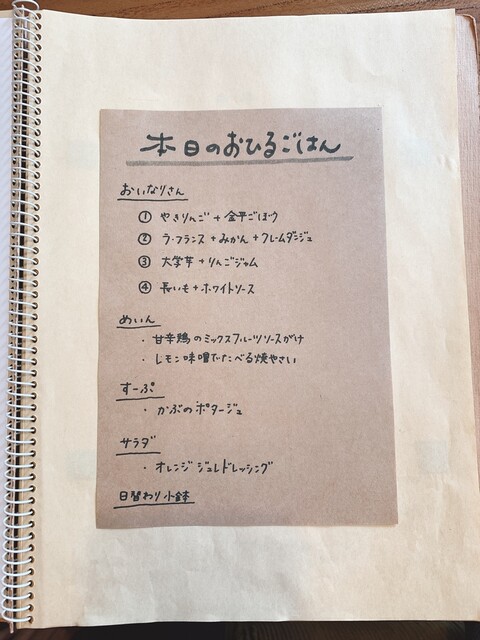 本日のおひるごはん
おいなりさん
① やきりんご+金平ごぼう
② ラ・フランス+みかん+クレームダンジュ
③ 大学芋+りんごジャム
④ 長いも+ホワイトソース
めいん
・甘辛鶏のミックスフルーツソースがけ
・レモン味噌でたべる焼やさい
すーぷ
・かぶのポタージュ
サラダ
・オレンジジュレドレッシング
日替わり小鉢